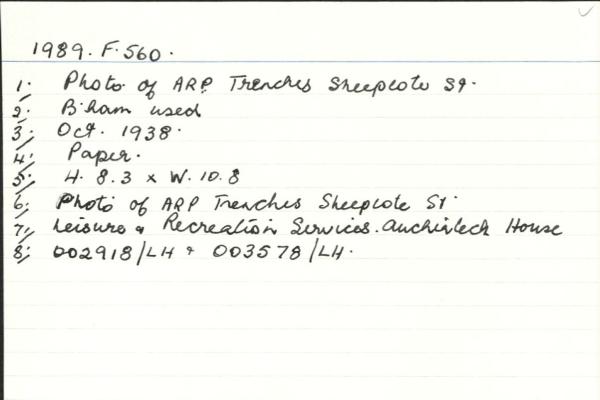 1989. F. 560.
1; Photo of ARP Trenches Sheepcote St.
2; B'ham used
3; Oct. 1938.
4; Paper.
5; H. 8.3 x W. 10.8
6; Photo of ARP Trenches Sheepcote St.
7; Leisure & Recreation Services. Auchinleck House
8; 002918/LH & 003578/LH.